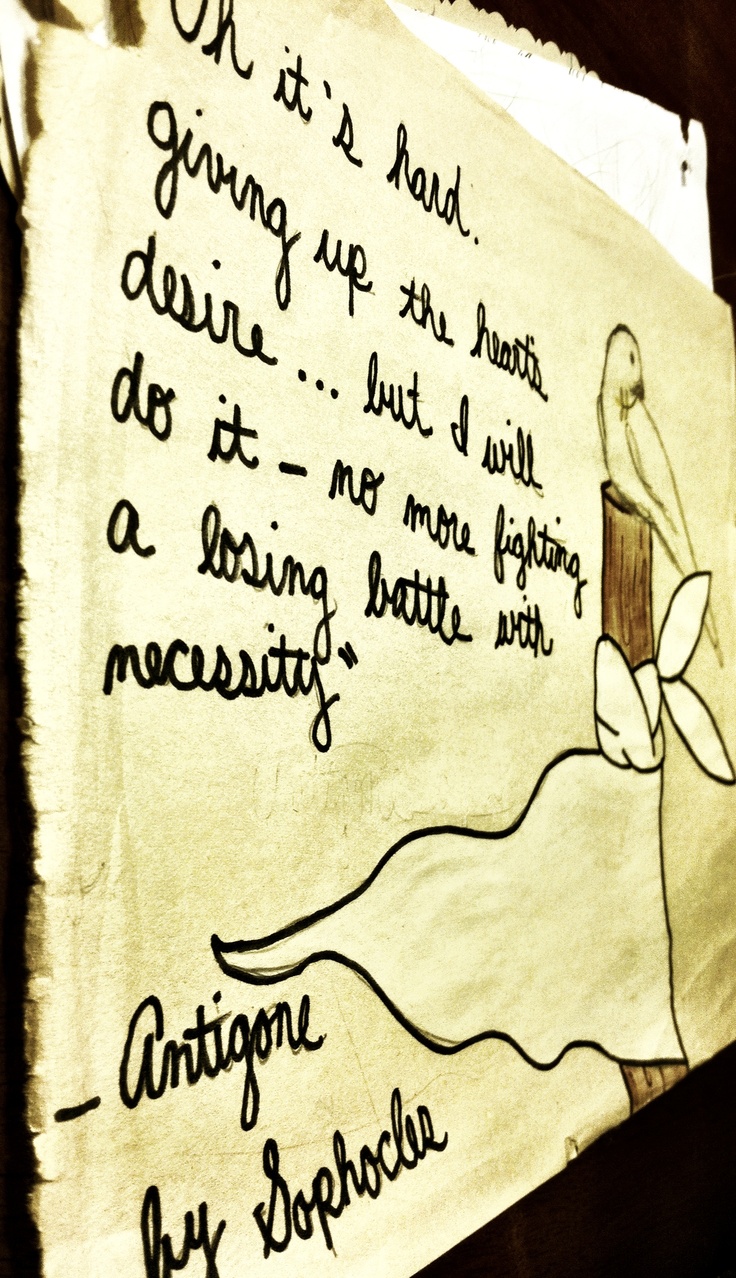 Oh it's hard.
giving up the heart's
desire... but I will
do it - no more fighting
a losing battle with
necessity"
- Antigone
by Sophocles